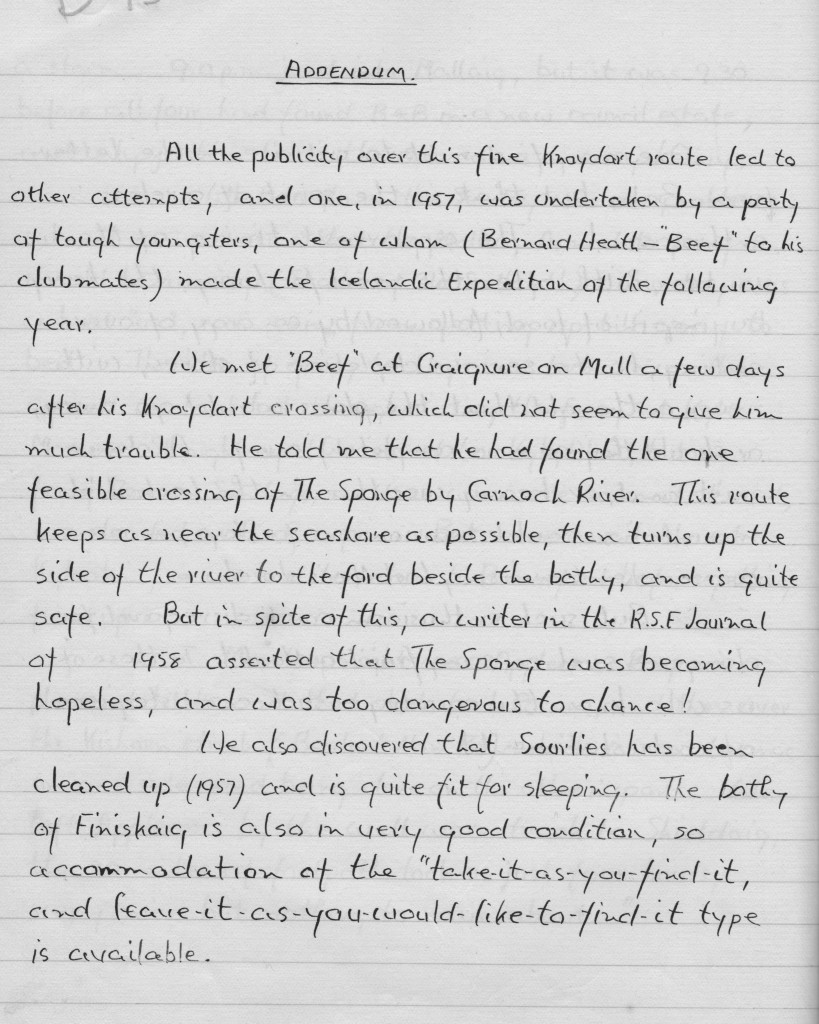 ADDENDUM.
All the publicity over this fine Knoydart route led to
other attempts, and one, in 1957, was undertaken by a party
of tough youngsters, one of whom (Bernard Heath – "Beef" to his
clubmates) made the Icelandic Expedition of the following
year.
We met 'Beef' at Craignure on Mull a few days
after his Knoydart crossing, which did not seem to give him
much trouble. He told me that he had found the one
feasible crossing of The Sponge by Carnoch River. This route
keeps as near the seashore as possible, then turns up the
side of the river to the ford beside the bothy, and is quite
safe. But in spite of this, a writer in the R.S.F Journal
of 1958 asserted that The Sponge was becoming
hopeless, and was too dangerous to chance!
We also discovered that Sourlies has been
cleaned up (1957) and is quite fit for sleeping. The bothy
of Finiskaig is also in very good condition, so
accommodation of the "take-it-as-you-find-it,
and leave-it-as-you-would-like-to-find-it type
is available.